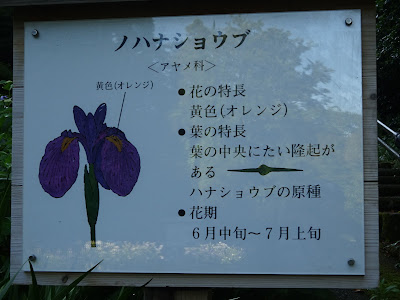 ノハナショウブ
＜アヤメ科＞
黄色(オレンジ)
●花の特長
黄色(オレンジ)
●葉の特長
葉の中央にたい隆起が
ある
ハナショウブの原種
●花期
６月中旬〜７月上旬